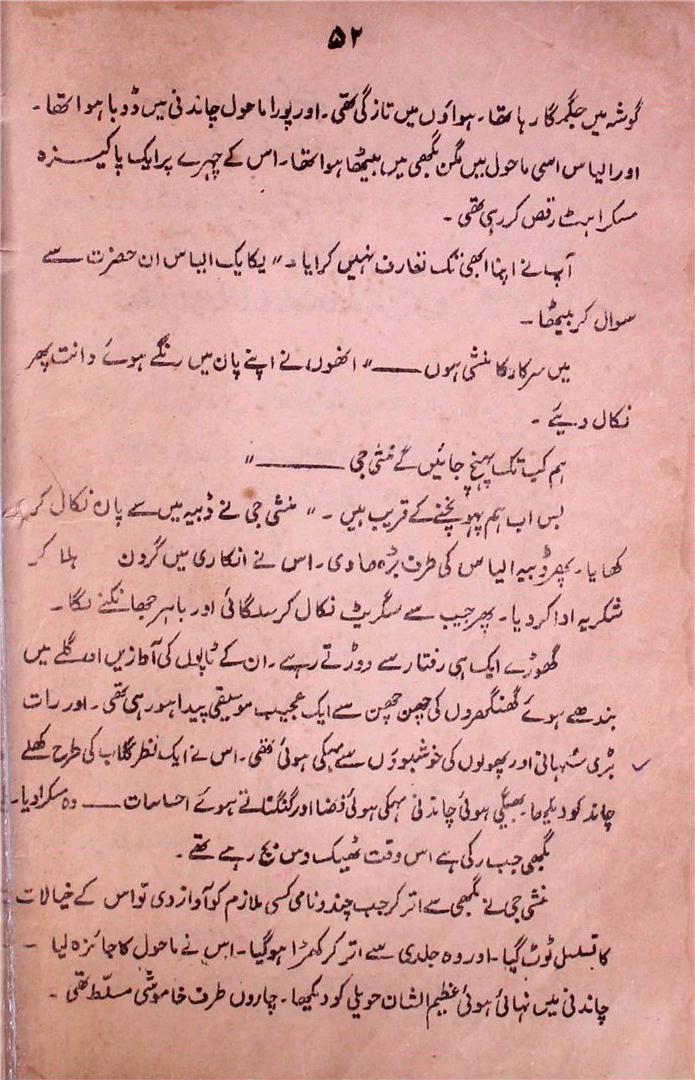 ۵۲
گوشہ میں جگمگا رہا تھا۔ ہواؤں میں تازگی تھی۔ اور پورا ماحول چاندنی میں ڈوبا ہوا تھا۔
اور الیاس اسی ماحول میں مگن بگھی میں بیٹھا ہوا تھا۔ اس کے چہرے پر ایک پاکیزہ
مسکراہٹ رقص کر رہی تھی۔
آپ نے اپنا ابھی تک تعارف نہیں کرایا۔" یکایک الیاس ان حضرت سے
سوال کر بیٹھا۔
میں سرکار کا منشی ہوں ——" انھوں نے اپنے پان میں رنگے ہوئے دانت پھر
نکال دیئے۔
ہم کب تک پہنچ جائیں گے منشی جی ——"
بس اب ہم پہونچنے کے قریب ہیں۔" منشی جی نے ڈبیہ میں سے پان نکال کر
کھایا۔ پھر ڈبیہ الیاس کی طرف بڑھا دی۔ اس نے انکاری میں گردن ہلا کر
شکریہ ادا کر دیا۔ پھر جیب سے سگریٹ نکال کر سلگائی اور باہر جھانکنے لگا۔
گھوڑے ایک ہی رفتار سے دوڑتے رہے۔ ان کے ٹاپوں کی آوازیں اور گلے میں
بندھے ہوئے گھنگھروں کی چھن چھن سے ایک عجیب موسیقی پیدا ہو رہی تھی۔ اور رات
بڑی سُہانی اور پھولوں کی خوشبوؤں سے مہکی ہوئی تھی۔ اس نے ایک نظر گلاب کی طرح کھلے
چاند کو دیکھا۔ بھیگی ہوئی چاندنی مہکی ہوئی فضا اور گنگناتے ہوئے احساسات —— وہ مسکرا دیا۔
بگھی جب رکی ہے اس وقت ٹھیک دس بج رہے تھے۔
منشی جی نے بگھی سے اتر کر جب چندو نامی کسی ملازم کو آواز دی تو اس کے خیالات
کا تسلسل ٹوٹ گیا۔ اور وہ جلدی سے اتر کر کھڑا ہو گیا۔ اس نے ماحول کا جائزہ لیا۔
چاندنی میں نہائی ہوئی عظیم الشان حویلی کو دیکھا۔ چاروں طرف خاموشی مسلّط تھی۔